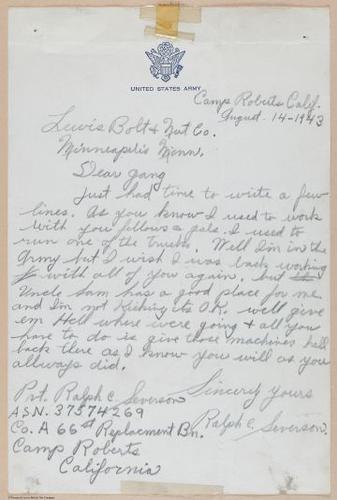 UNITED STATES ARMY
Camp Roberts Calif.
August-14-1943
Lewis Bolt & Nut Co.
Minneapolis Minn.
Dear gang
Just had time to write a few
lines. As you know I used to work
with you fellows & gals. I used to
run one of the trucks. Well I'm in the
Army but I wish I was back working
with all of you again. but
Uncle Sam has a good place for me
and I'm not kicking its O.K. we'll give
em Hell where we're going & all you
have to do is give those machines hell
back there as I know you will as you
allways did.
Sincerly yours
Ralph C. Severson.
Pvt. Ralph C. Severson
A.S.N. 37574269
Co. A 66st Replacement Bn.
Camp Roberts
California